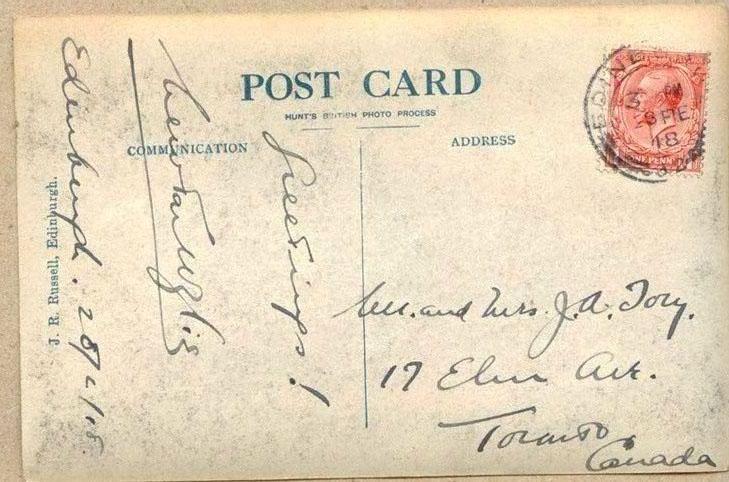 POST CARD
HUNT'S BRITISH PHOTO PROCESS
COMMUNICATION
ADDRESS
J. R. Russell, Edinburgh.
Edinburgh. 28/2/18.
Greetings!
Mr. and Mrs. J. A. Tory.
17 Elm Ave.
Toronto
Canada
EDINBURGH
PM
FE
18
ONE PENNY